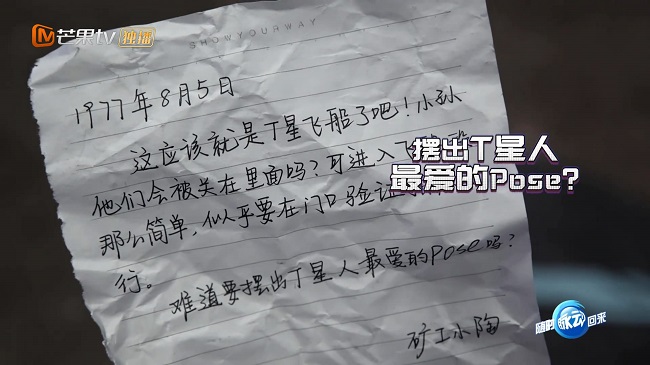 芒果tv 独播
SHOWYOURWAY
1977年8月5日
这应该就是T星飞船了吧！小孙
他们会被关在里面吗？可进入飞
那么简单，似乎要在门口验证
行。
难道要摆出T星人最爱的pose吗？
矿工小陶
摆出T星人
最爱的Pose？
随时
回来